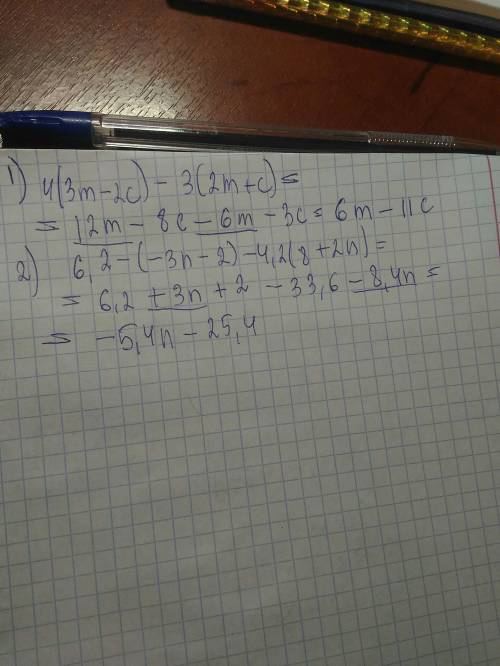 1) 4(3m-2c) - 3(2m+c)=
= 12m - 8c - 6m - 3c = 6m - 11c
2) 6,2-(-3n-2)-4,2(8+2n)=
= 6,2 + 3n + 2 - 33,6 - 8,4n =
= -5,4n - 25,4